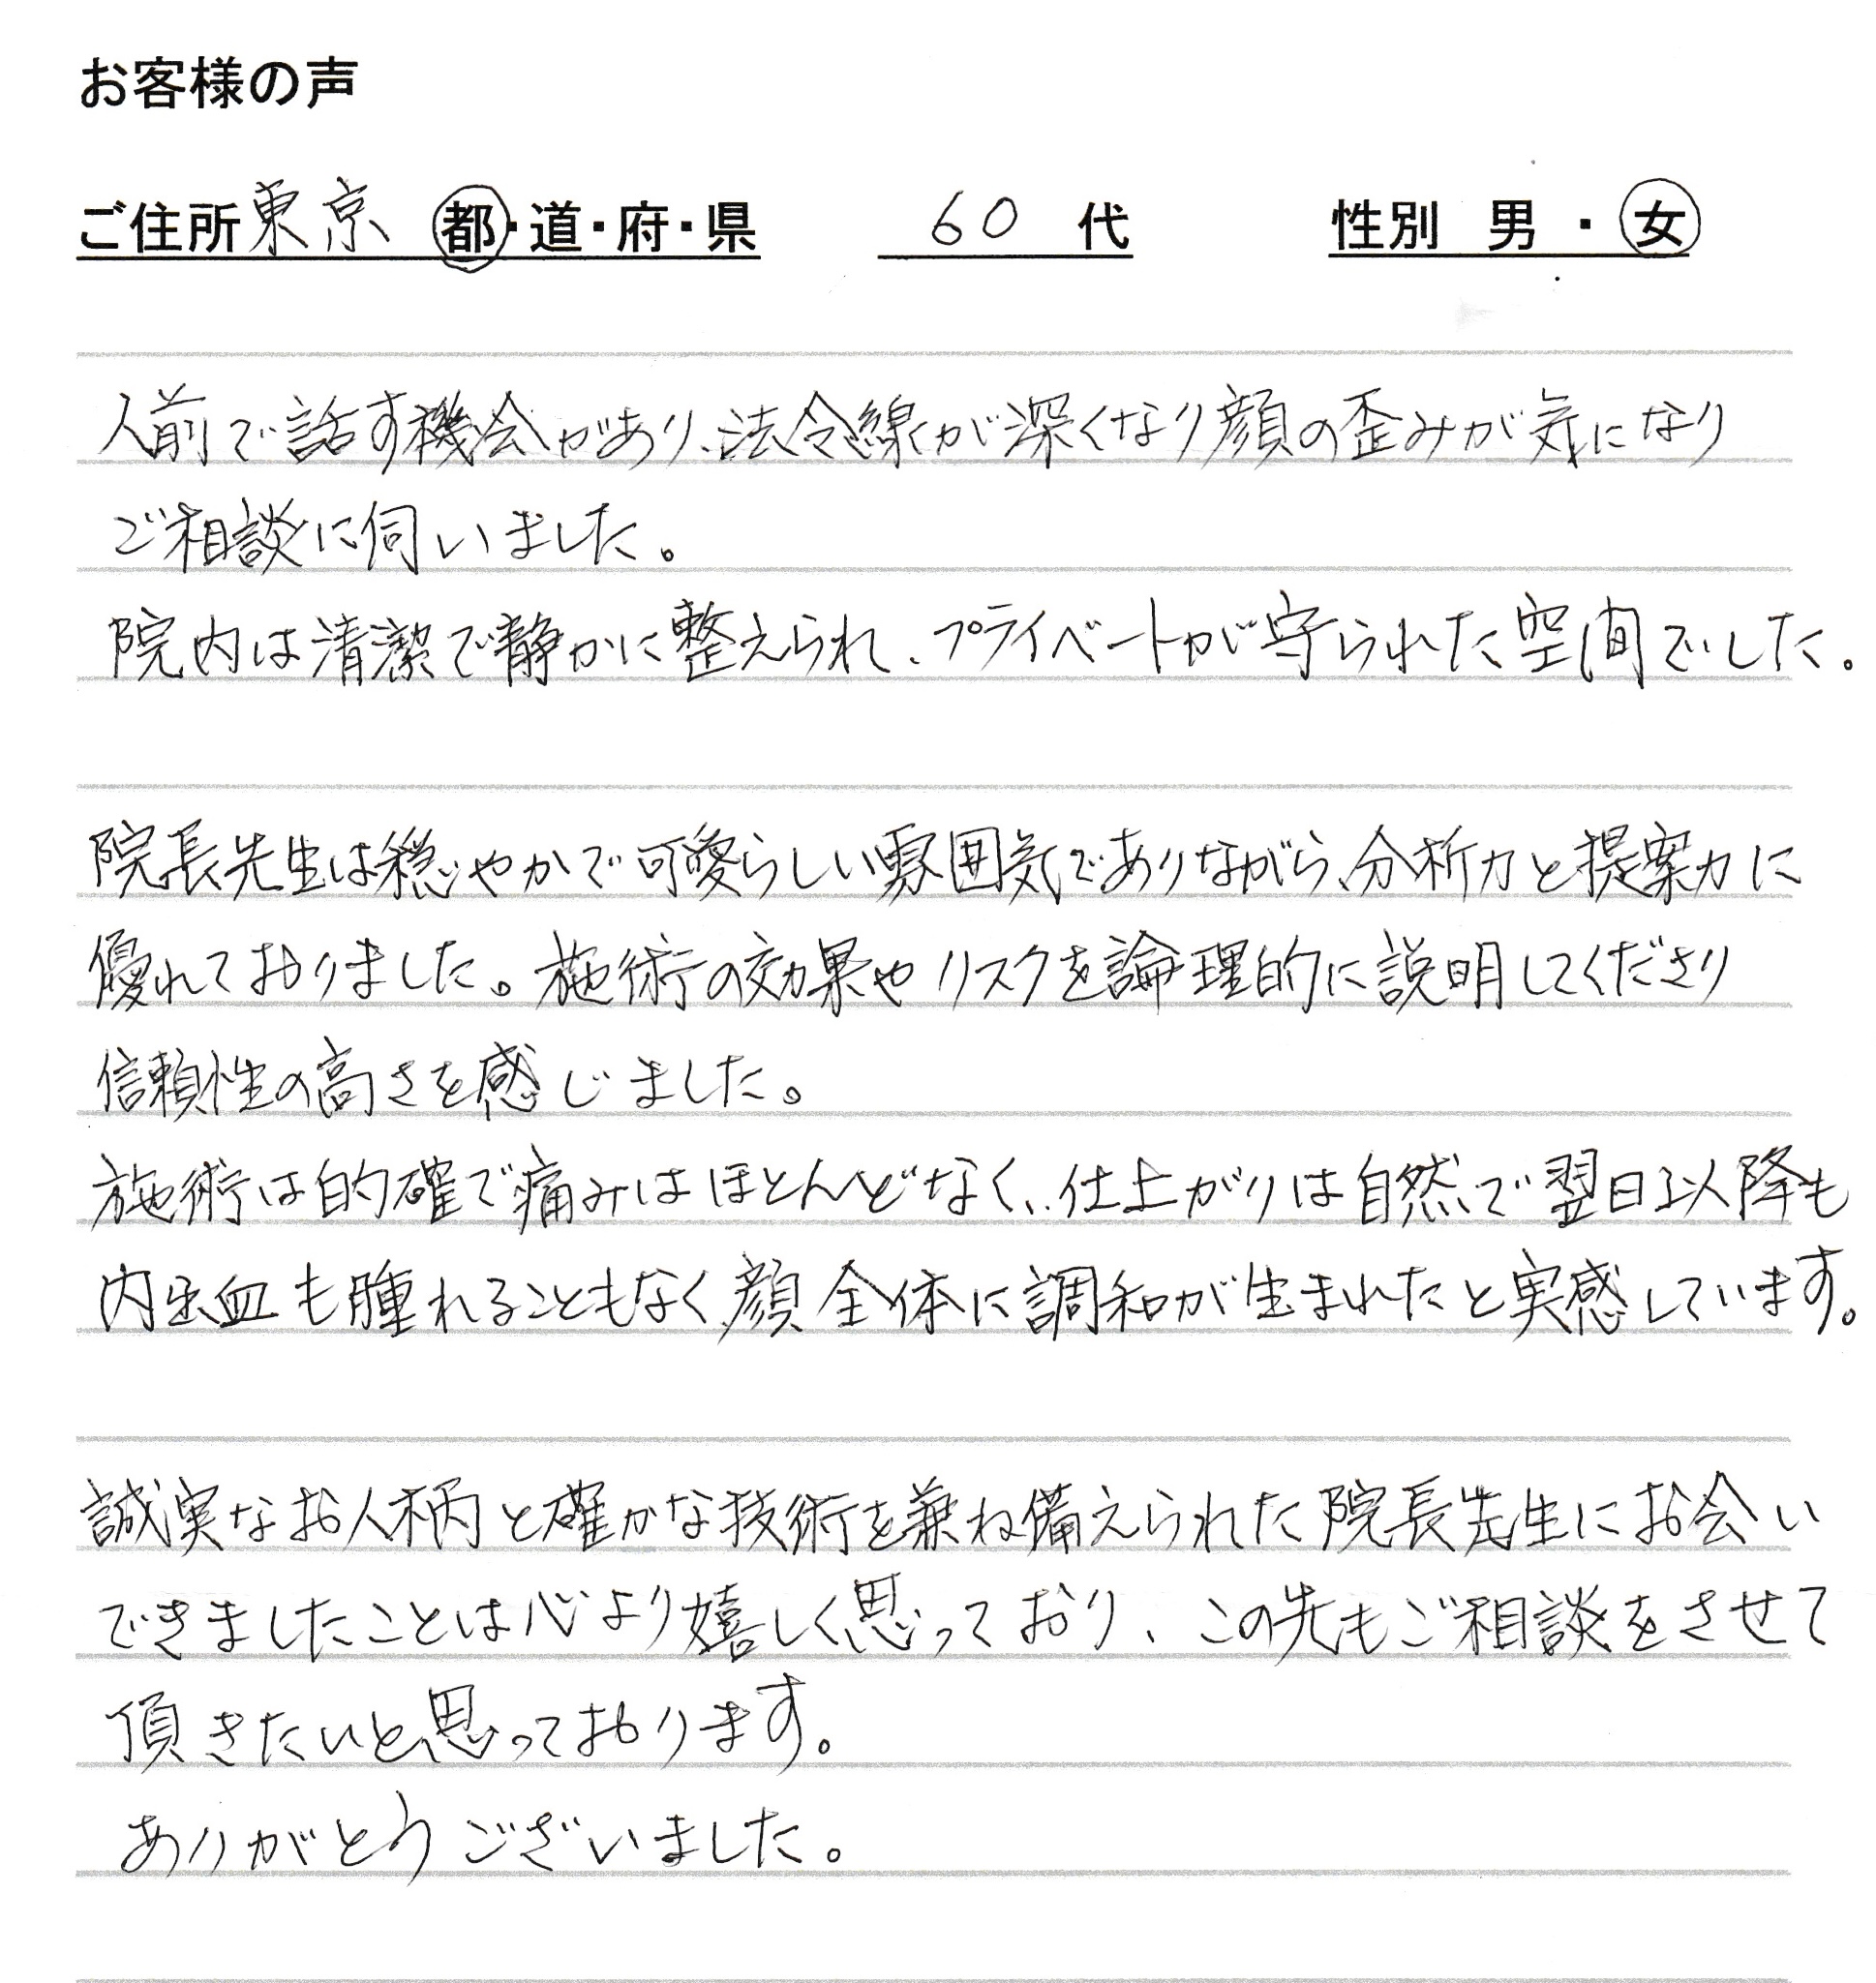 お客様の声
ご住所 東京 都・道・府・県 60 代 性別 男 ・ 女
人前で話す機会があり、法令線が深くなり顔の歪みが気になり
ご相談に伺いました。
院内は清潔で静かに整えられ、プライベートが守られた空間でした。
院長先生は穏やかで可愛らしい雰囲気でありながら、分析力と提案力に
優れておりました。施術の効果やリスクを論理的に説明してくださり
信頼性の高さを感じました。
施術は的確で痛みはほとんどなく、仕上がりは自然で翌日以降も
内出血も腫れることもなく、顔全体に調和が生まれたと実感しています。
誠実なお人柄と確かな技術を兼ね備えられた院長先生にお会い
できましたことは心より嬉しく思っており、この先もご相談をさせて
頂きたいと思っております。
ありがとうございました。